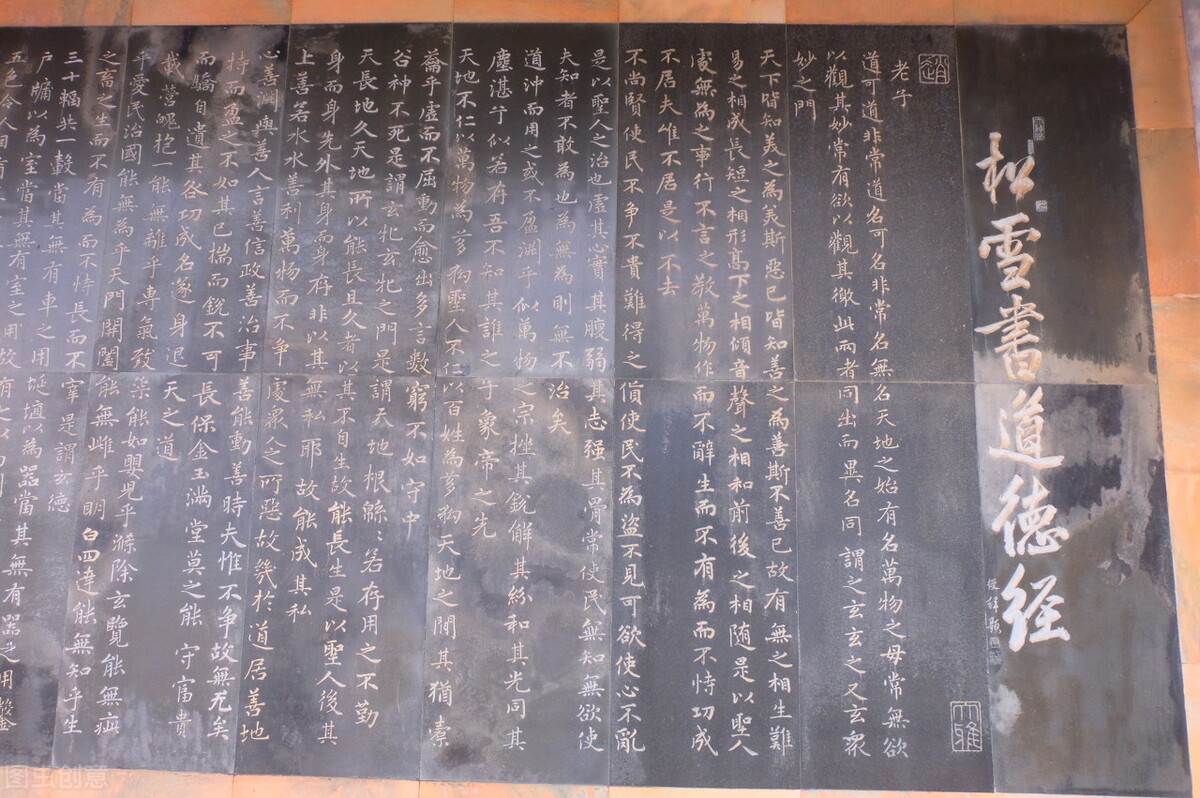 松雪書道德经
老子
道可道非常道名可名非常名無名天地之始有名萬物之母常無欲
以觀其妙常有欲以觀其徼此兩者同出而異名同謂之玄玄之又玄衆
妙之門
天下皆知美之為美斯惡已皆知善之為善斯不善已故有無之相生難
易之相成長短之相形高下之相傾音聲之相和前後之相随是以聖人
處無為之事行不言之教萬物作而不辭生而不有為而不恃功成
不居夫唯不居是以不去
不尚賢使民不争不貴難得之貨使民不為盗不見可欲使心不亂
是以聖人之治也虚其心實其腹弱其志强其骨常使民無知無欲使
夫知者不敢為也為無為則無不治矣
道沖而用之或不盈淵乎似萬物之宗挫其銳解其紛和其光同其
塵湛兮似若存吾不知其誰之子象帝之先
天地不仁以萬物為芻狗聖人不仁以百姓為芻狗天地之間其猶橐
籥乎虚而不屈動而愈出多言數窮不如守中
谷神不死是謂玄牝玄牝之門是謂天地根緜〻若存用之不勤
天長地久天地所以能長且久者以其不自生故能長生是以聖人後其
身而身先外其身而身存非以其無私耶故能成其私
上善若水水善利萬物而不争處衆人之所惡故幾於道居善地
心善淵與善人言善信政善治事善能動善時夫惟不争故無尤矣
持而盈之不如其已揣而銳不可長保金玉滿堂莫之能守富貴
而驕自遺其咎功成名遂身退天之道
載營魄抱一能無離乎專氣致柔能如嬰兒乎滌除玄覽能無疵
乎愛民治國能無為乎天門開闔能無雌乎明白四達能無知乎生
之畜之生而不有為而不恃長而不宰是謂玄德
三十輻共一轂當其無有車之用埏埴以為器當其無有器之用鑿
戶牖以為室當其無有室之用故有之以為利
五色令人目
图虫创意